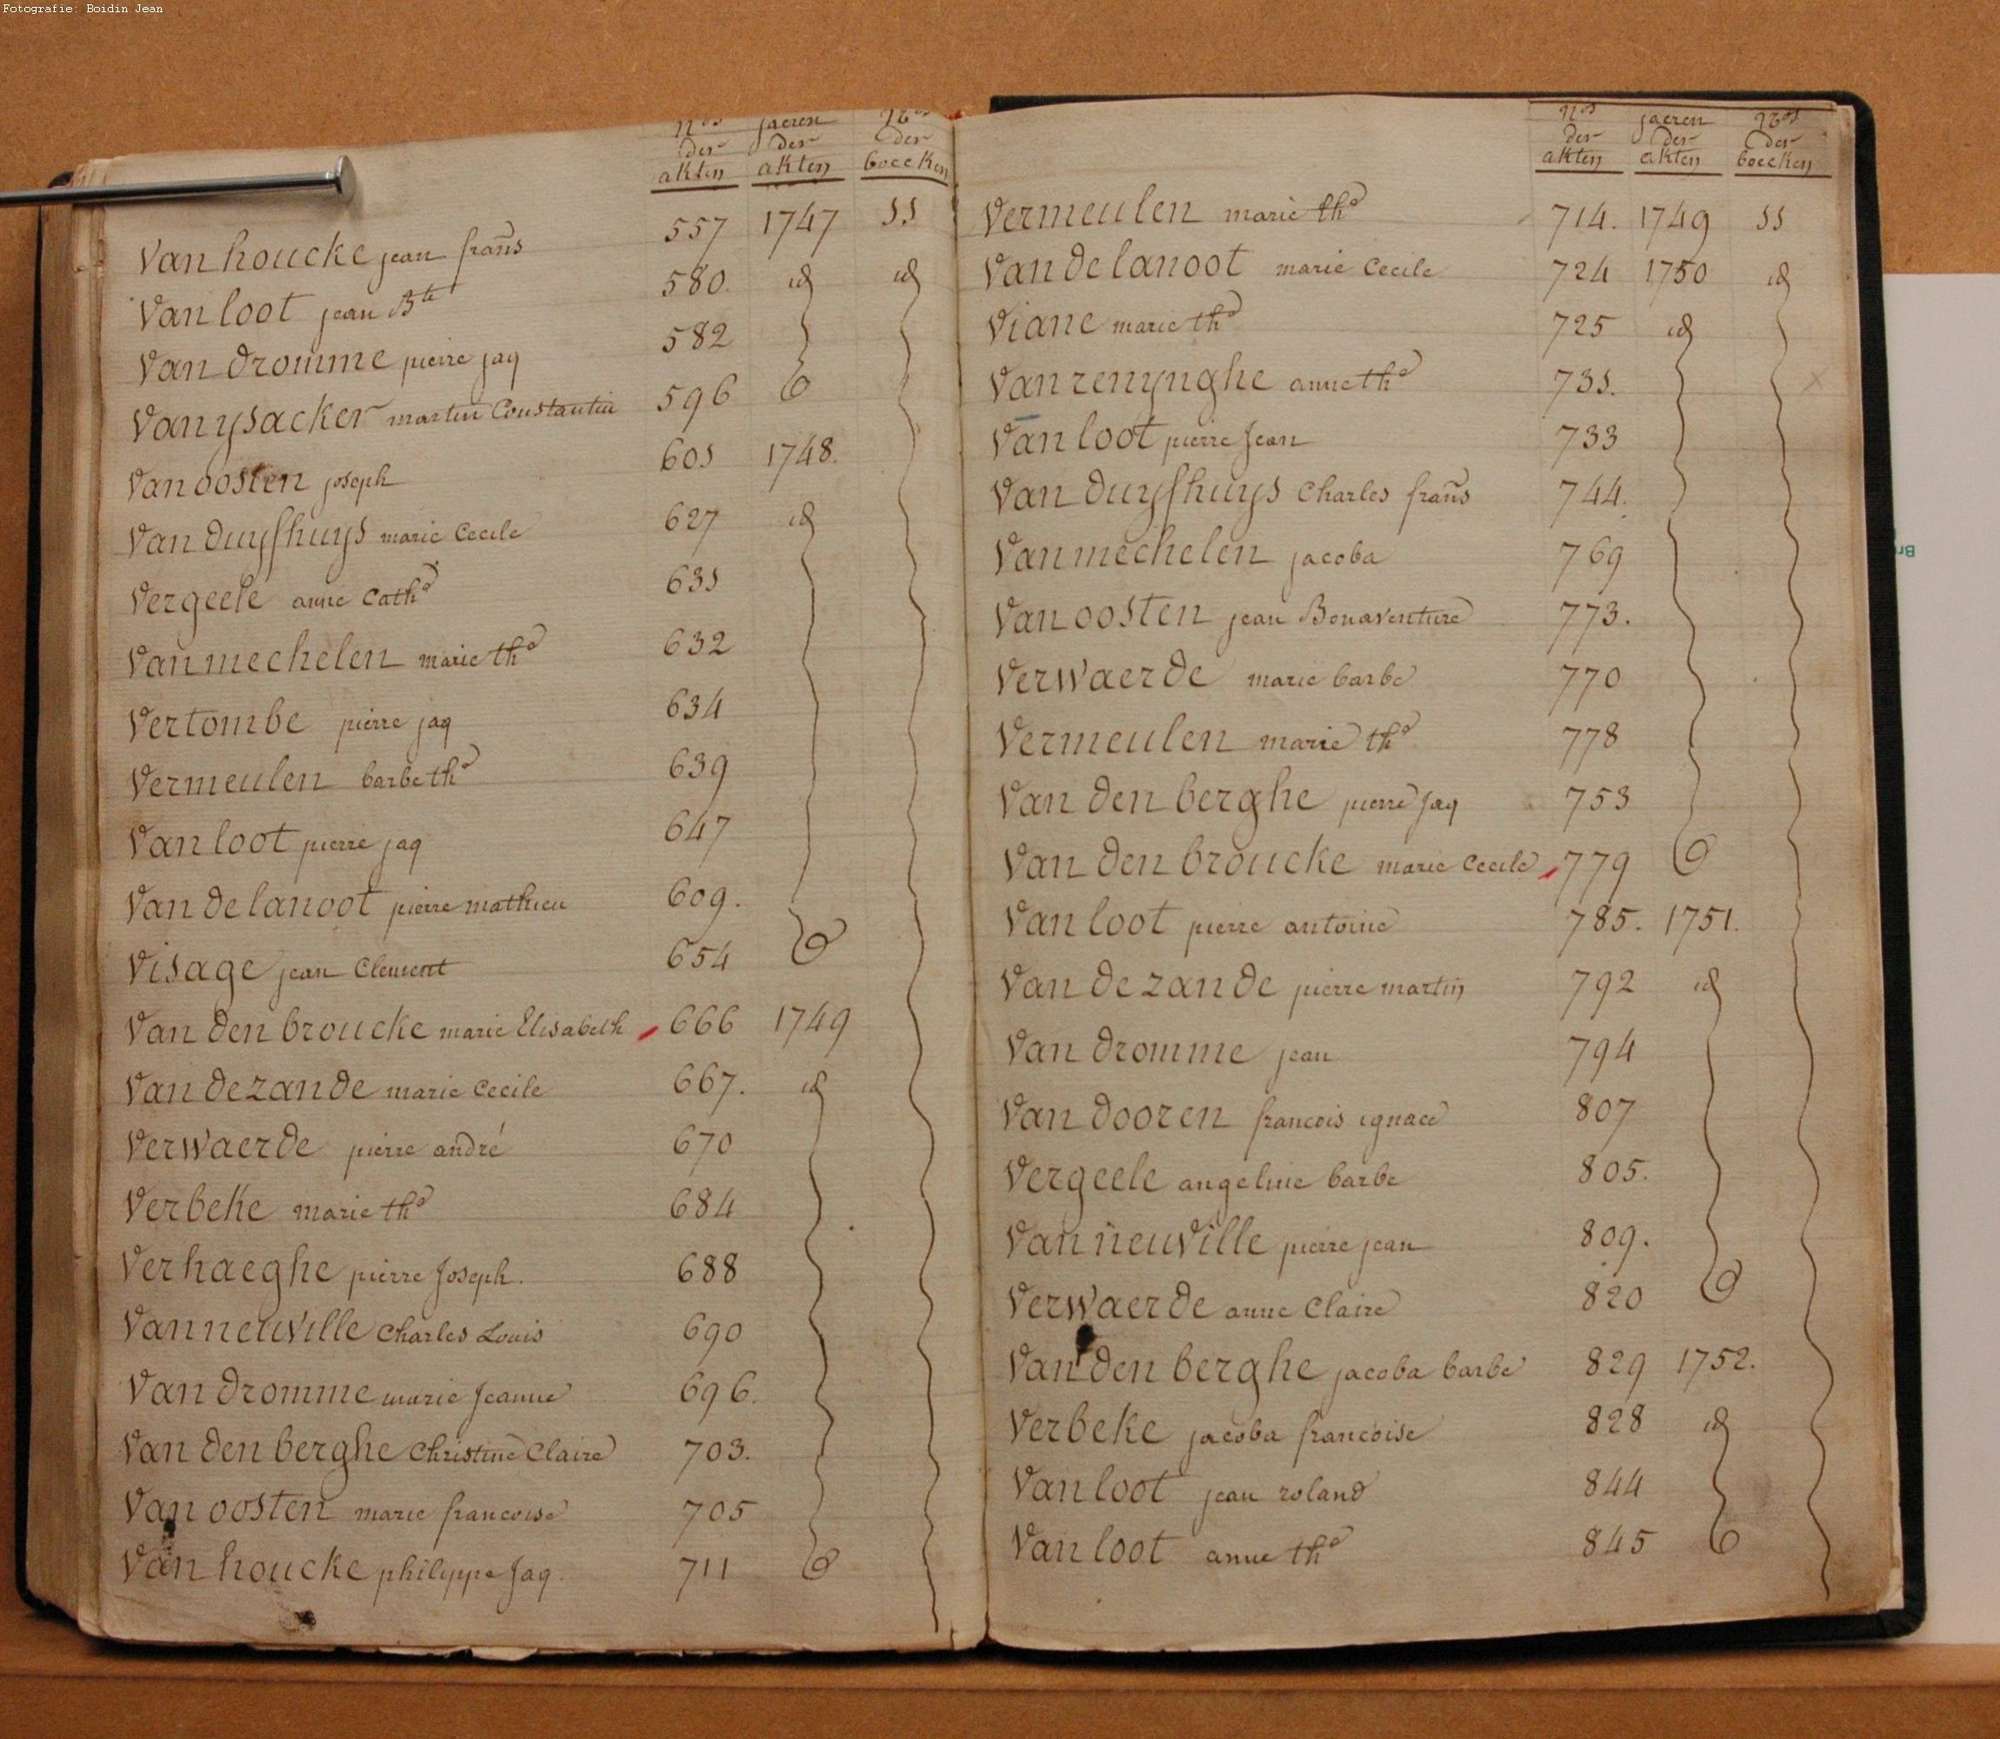 Fotografie: Boidin Jean
nos jaeren nos
der der der
akten akten boecken
Van houcke jean frans 557 1747 11
Van loot jean Bte 580. id id
Van Dromme pierre jaq 582
Van ysacker martin Constantin 596
Van oosten joseph 601 1748.
Van Duyfhuys marie Cecile 627 id
Vergeele anne Cathe 631
Van mechelen marie the 632
Vertombe pierre jaq 634
Vermeulen barbe the 639
Van loot pierre jaq 647
Van de lanoot pierre mathieu 609.
Visage jean Clement 654
Van den broucke marie Elisabeth 666 1749
Van de zande marie Cecile 667. id
Verwaerde pierre andré 670
Verbeke marie the 684
Verhaeghe pierre Joseph. 688
Van neuville Charles Louis 690
Van Dromme marie Jeanne 696.
Van den berghe Christine Claire 703.
Van oosten marie francoise 705
Van houcke philippe Jaq. 711
nos jaeren nos
der der der
akten akten boecken
Vermeulen marie the 714. 1749 11
Van de lanoot marie Cecile 724 1750 id
Viane marie the 725 id
Van renynghe anne the 731.
Van loot pierre Jean 733
Van Duyfhuys Charles frans 744.
Van mechelen jacoba 769
Van oosten jean Bonaventure 773.
Verwaerde marie barbe 770
Vermeulen marie the 778
Van den berghe pierre Jaq 753
Van den broucke marie Cecile 779
Van loot pierre antoine 785. 1751.
Van de zande pierre martin 792 id
Van Dromme jean 794
Van Dooren francois ignace 807
Vergeele angeline barbe 805.
Van neuville pierre jean 809.
Verwaerde anne Claire 820
Van den berghe jacoba barbe 829 1752.
Verbeke jacoba francoise 828 id
Van loot jean roland 844
Van loot anne the 845